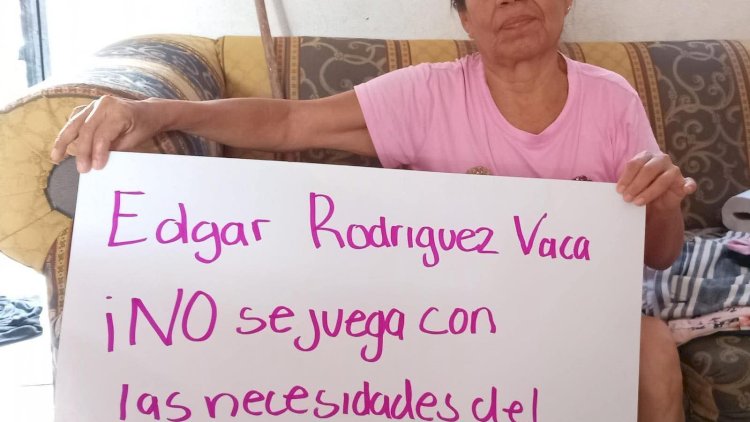 Edgar Rodriguez Vaca
¡NO se juega con
las necesidades del